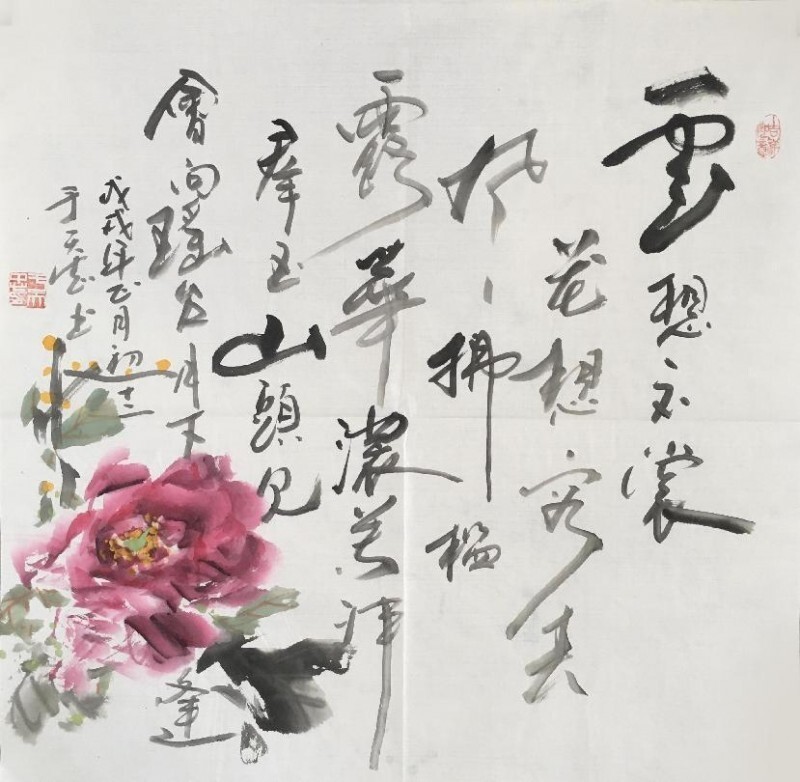 雲想衣裳
花想容春
风拂槛
露華濃若非
羣玉山頭见
會向瑤台月下逢
戊戌年正月初十二
于天书